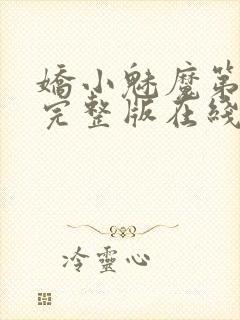 嬌小魅魔第
完整版在綫
冷靈心